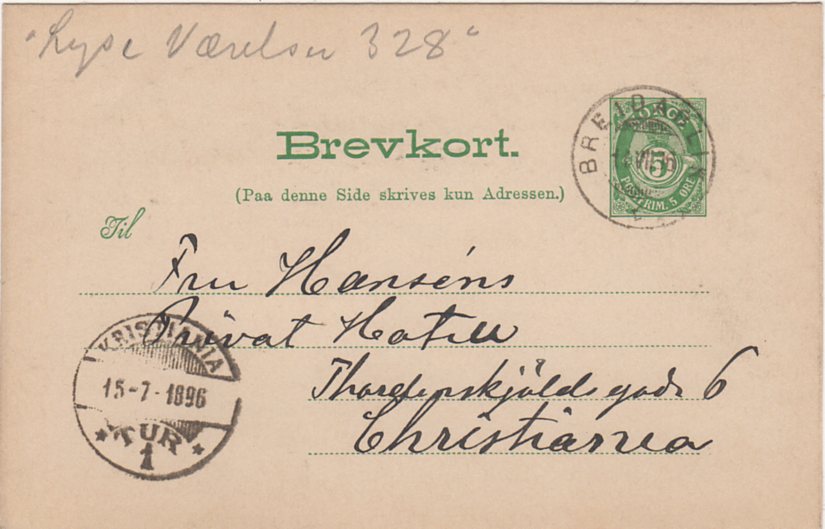 "Lyse Værelser 328"
BREIDABLIK
NORGE
5
POSTFRIM. 5 ØRE
Brevkort.
(Paa denne Side skrives kun Adressen.)
Til
Fru Hanséns
Privat Hotell
Thordenskjoldsgade 6
Christiania
KRISTIANIA
15-7-1896
TUR
1